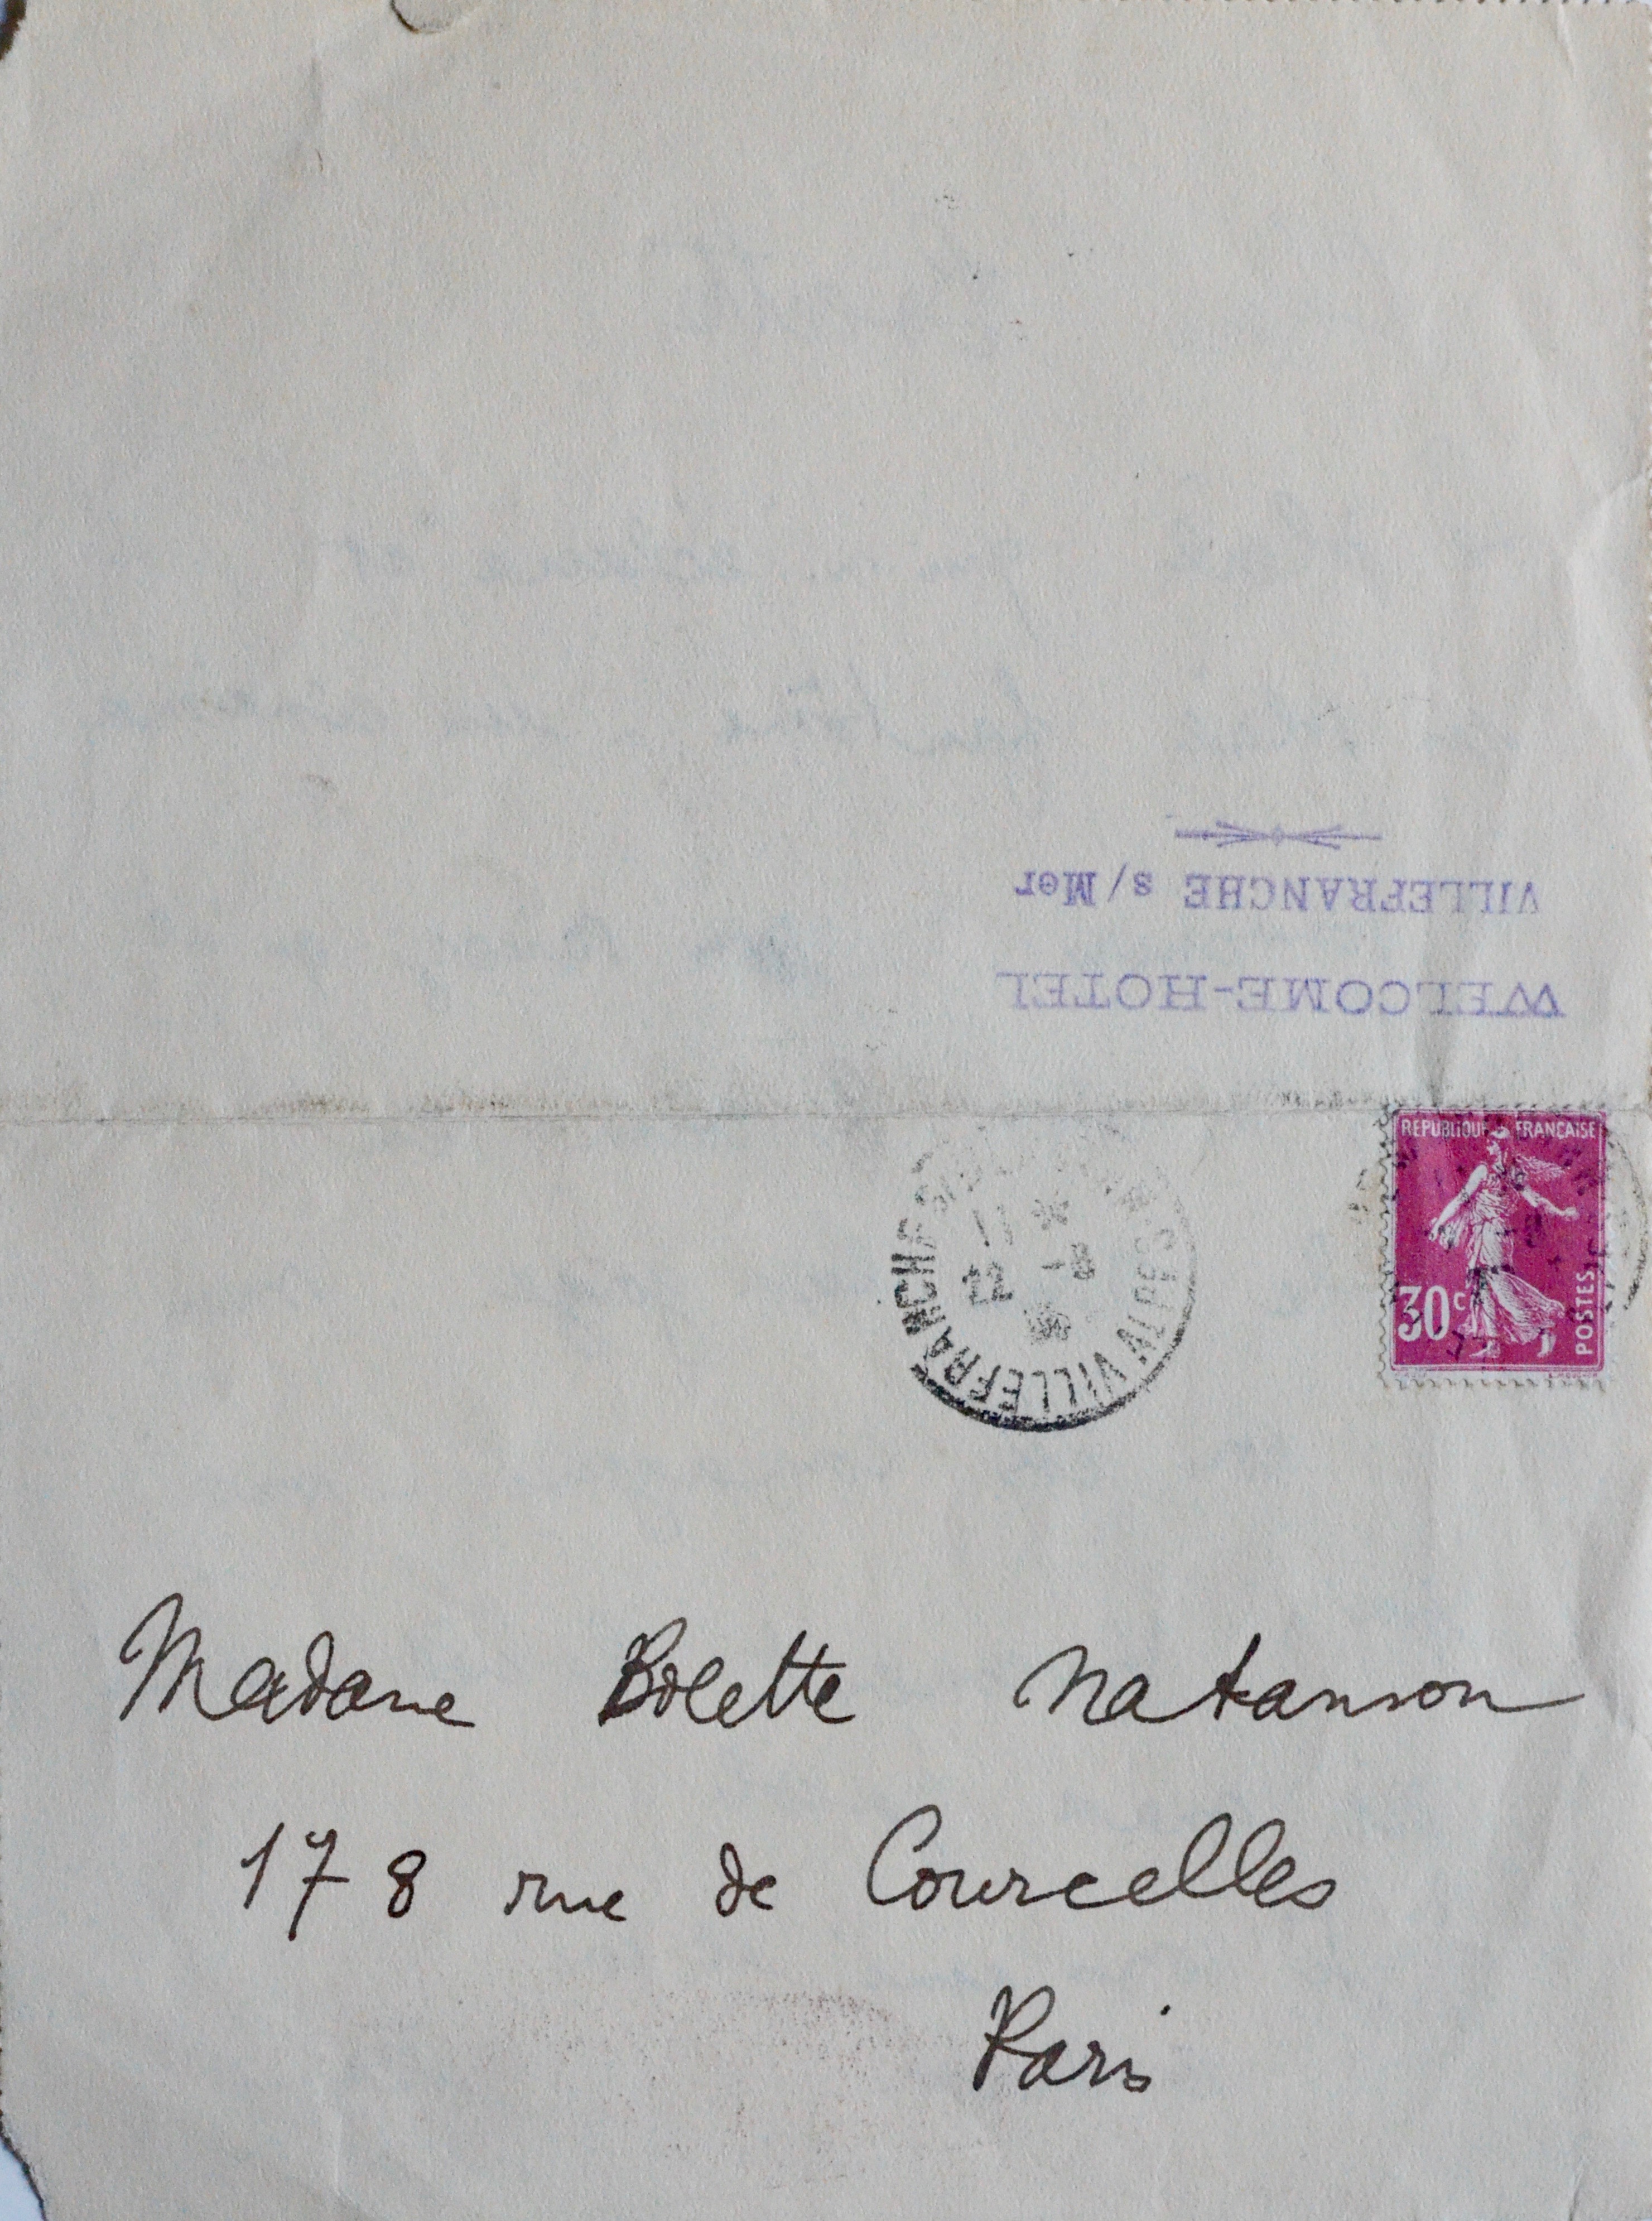 WELCOME-HOTEL
VILLEFRANCHE s/Mer
REPUBLIQUE FRANCAISE
30c
POSTES
VILLEFRANCHE S/
ALPES
11 *
22 -8
Madame Bolette Natanson
178 rue de Courcelles
Paris